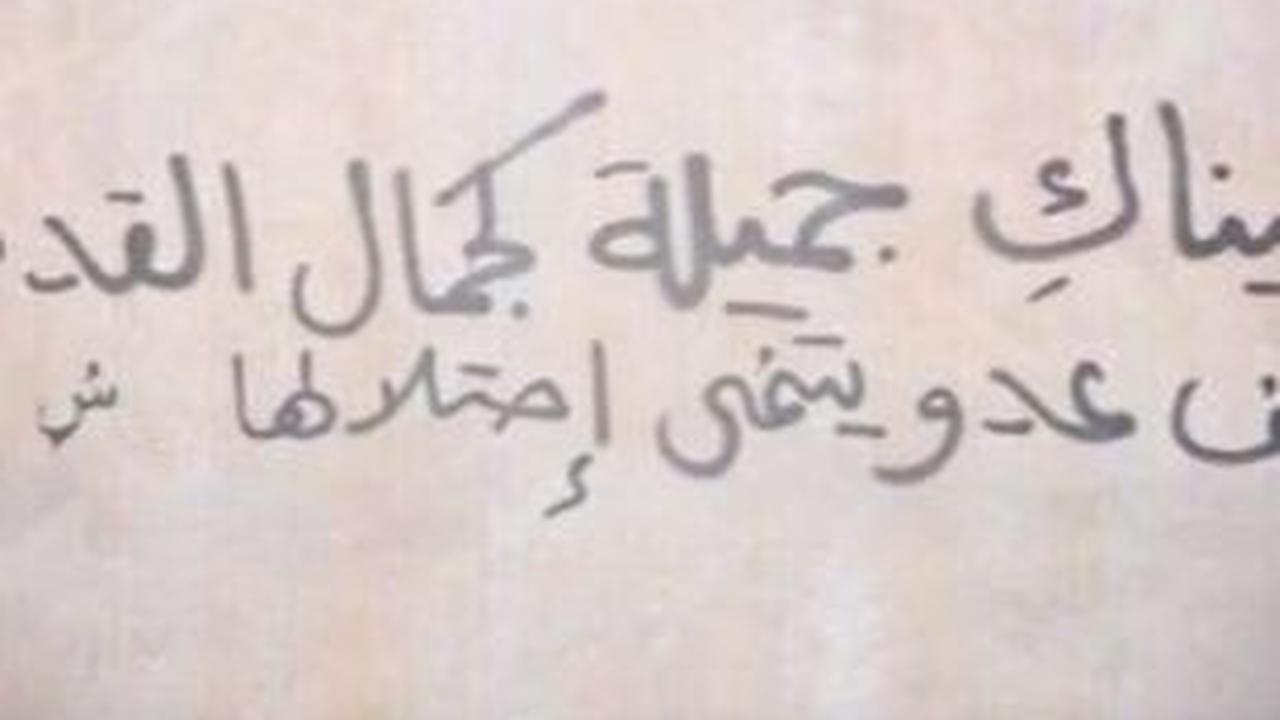 يناكِ جميلة كجمال القد
ف عدو يتمنى إحتلالها ش